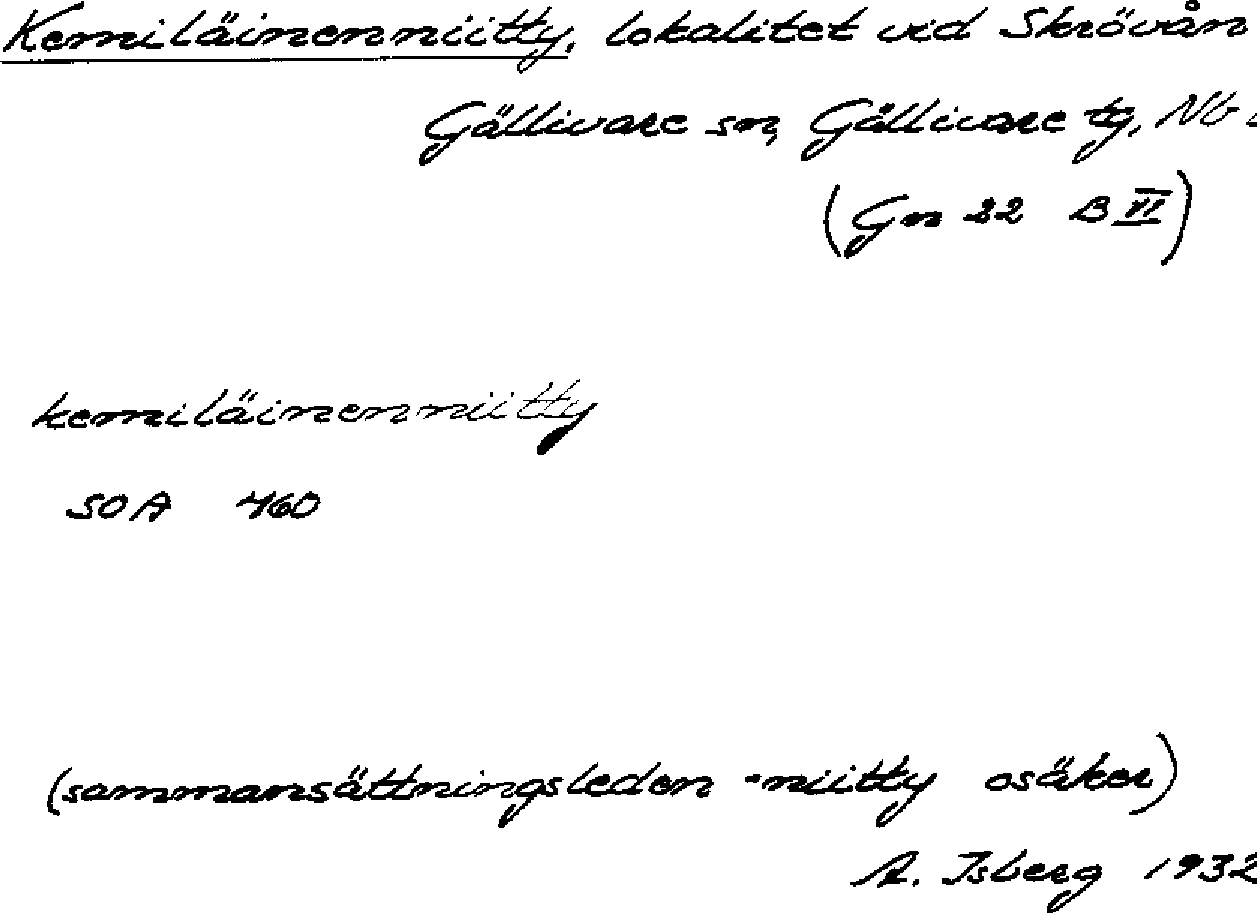 Kemiläinenniitty, lokalitet vid Skrövån
Gällivare sn, Gällivare tg, Nb
(Gn 22 B VI)
kemiläinenniitty
SOA 460
(sammansättningsleden -niitty osäker)
A. Isberg 1932